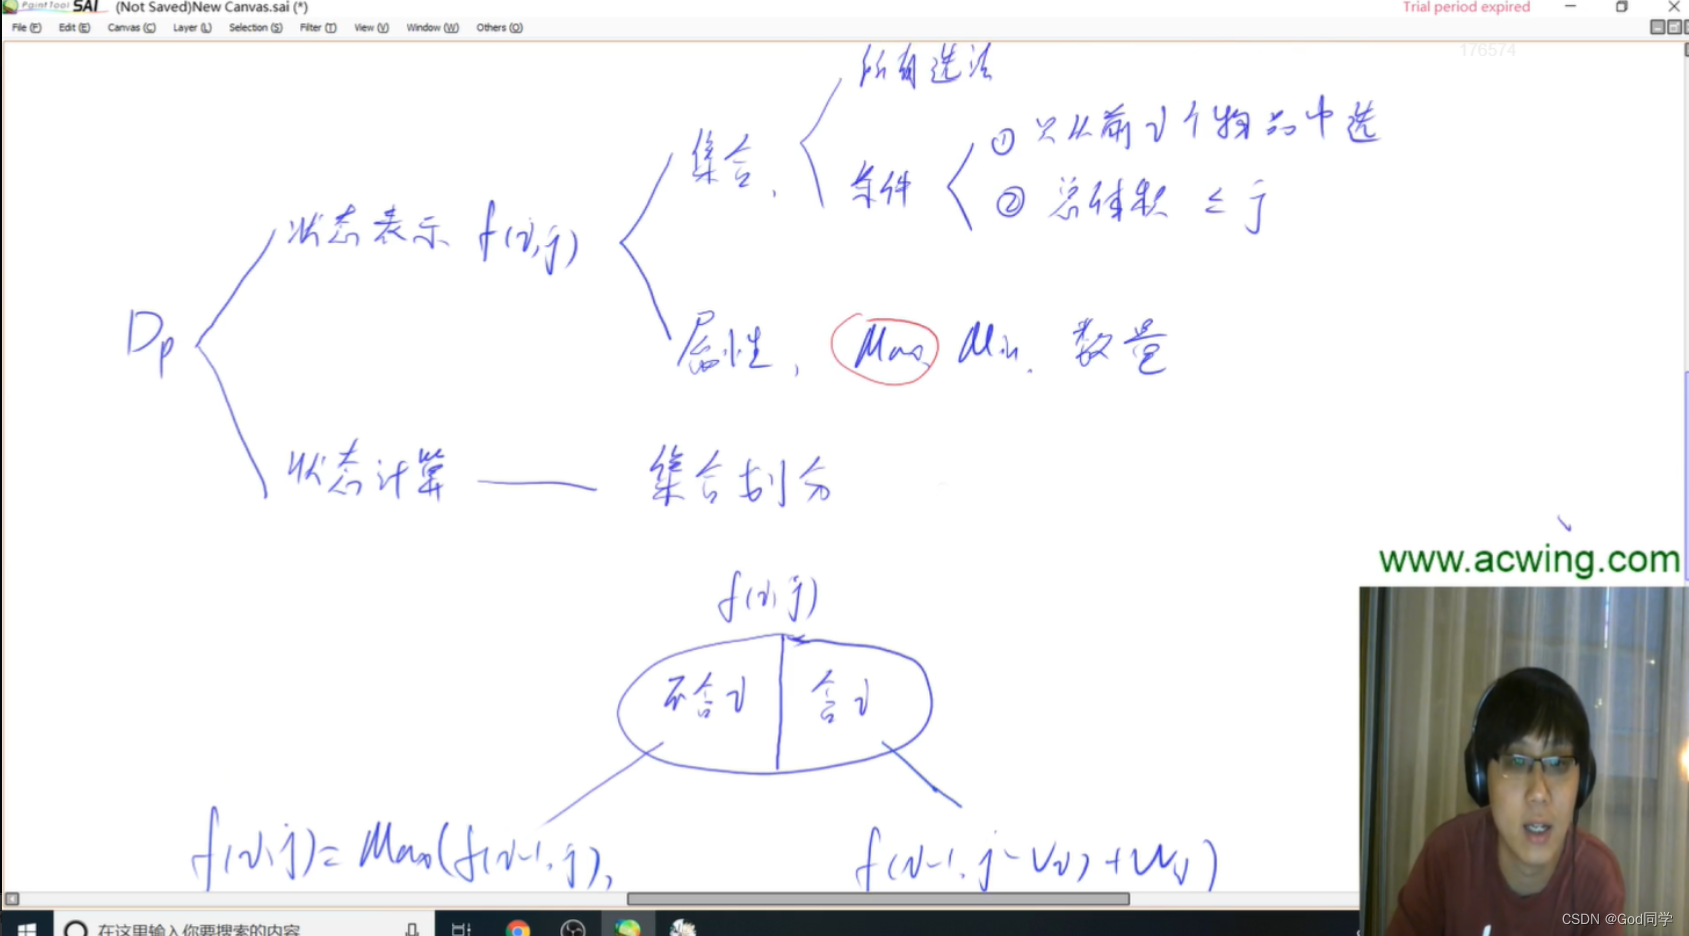 PaintTool SAI (Not Saved)New Canvas.sai (*) Trial period expired
File (F) Edit (E) Canvas (C) Layer (L) Selection (S) Filter (T) View (V) Window (W) Others (O)
176574
所有选法
集合,
条件
① 只从前i个物品中选
② 总体积 ≤ j
状态表示 f(i,j)
Dp
属性, Max, Min, 数量
状态计算 —— 集合划分
www.acwing.com
f(i,j)
不含i 含i
f(i,j)= Max(f(i-1,j), f(i-1,j-Vi)+Wi)
在这里输入你要搜索的内容
CSDN @God同学